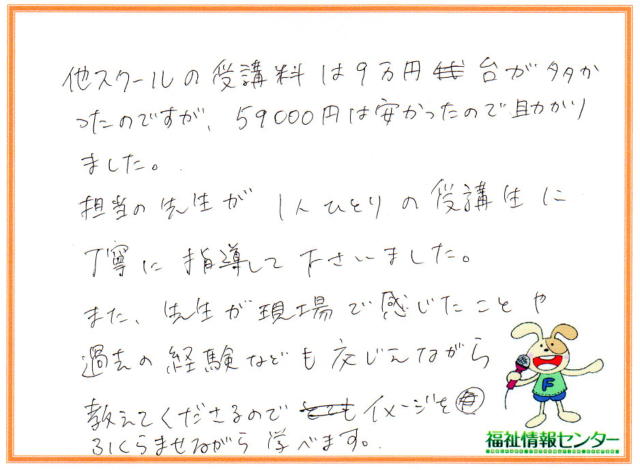 他スクールの受講料は9万円台が多か
ったのですが、59000円は安かったので助かり
ました。
担当の先生が1人ひとりの受講生に
丁寧に指導して下さいました。
また、先生が現場で感じたことや
過去の経験なども交じえながら
教えてくださるのでとてもイメージを
ふくらませながら学べます。
F
福祉情報センター